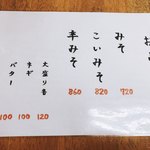 みそ 720
こいみそ 820
辛みそ 860
大盛り各 120
ネギ 100
バター 100